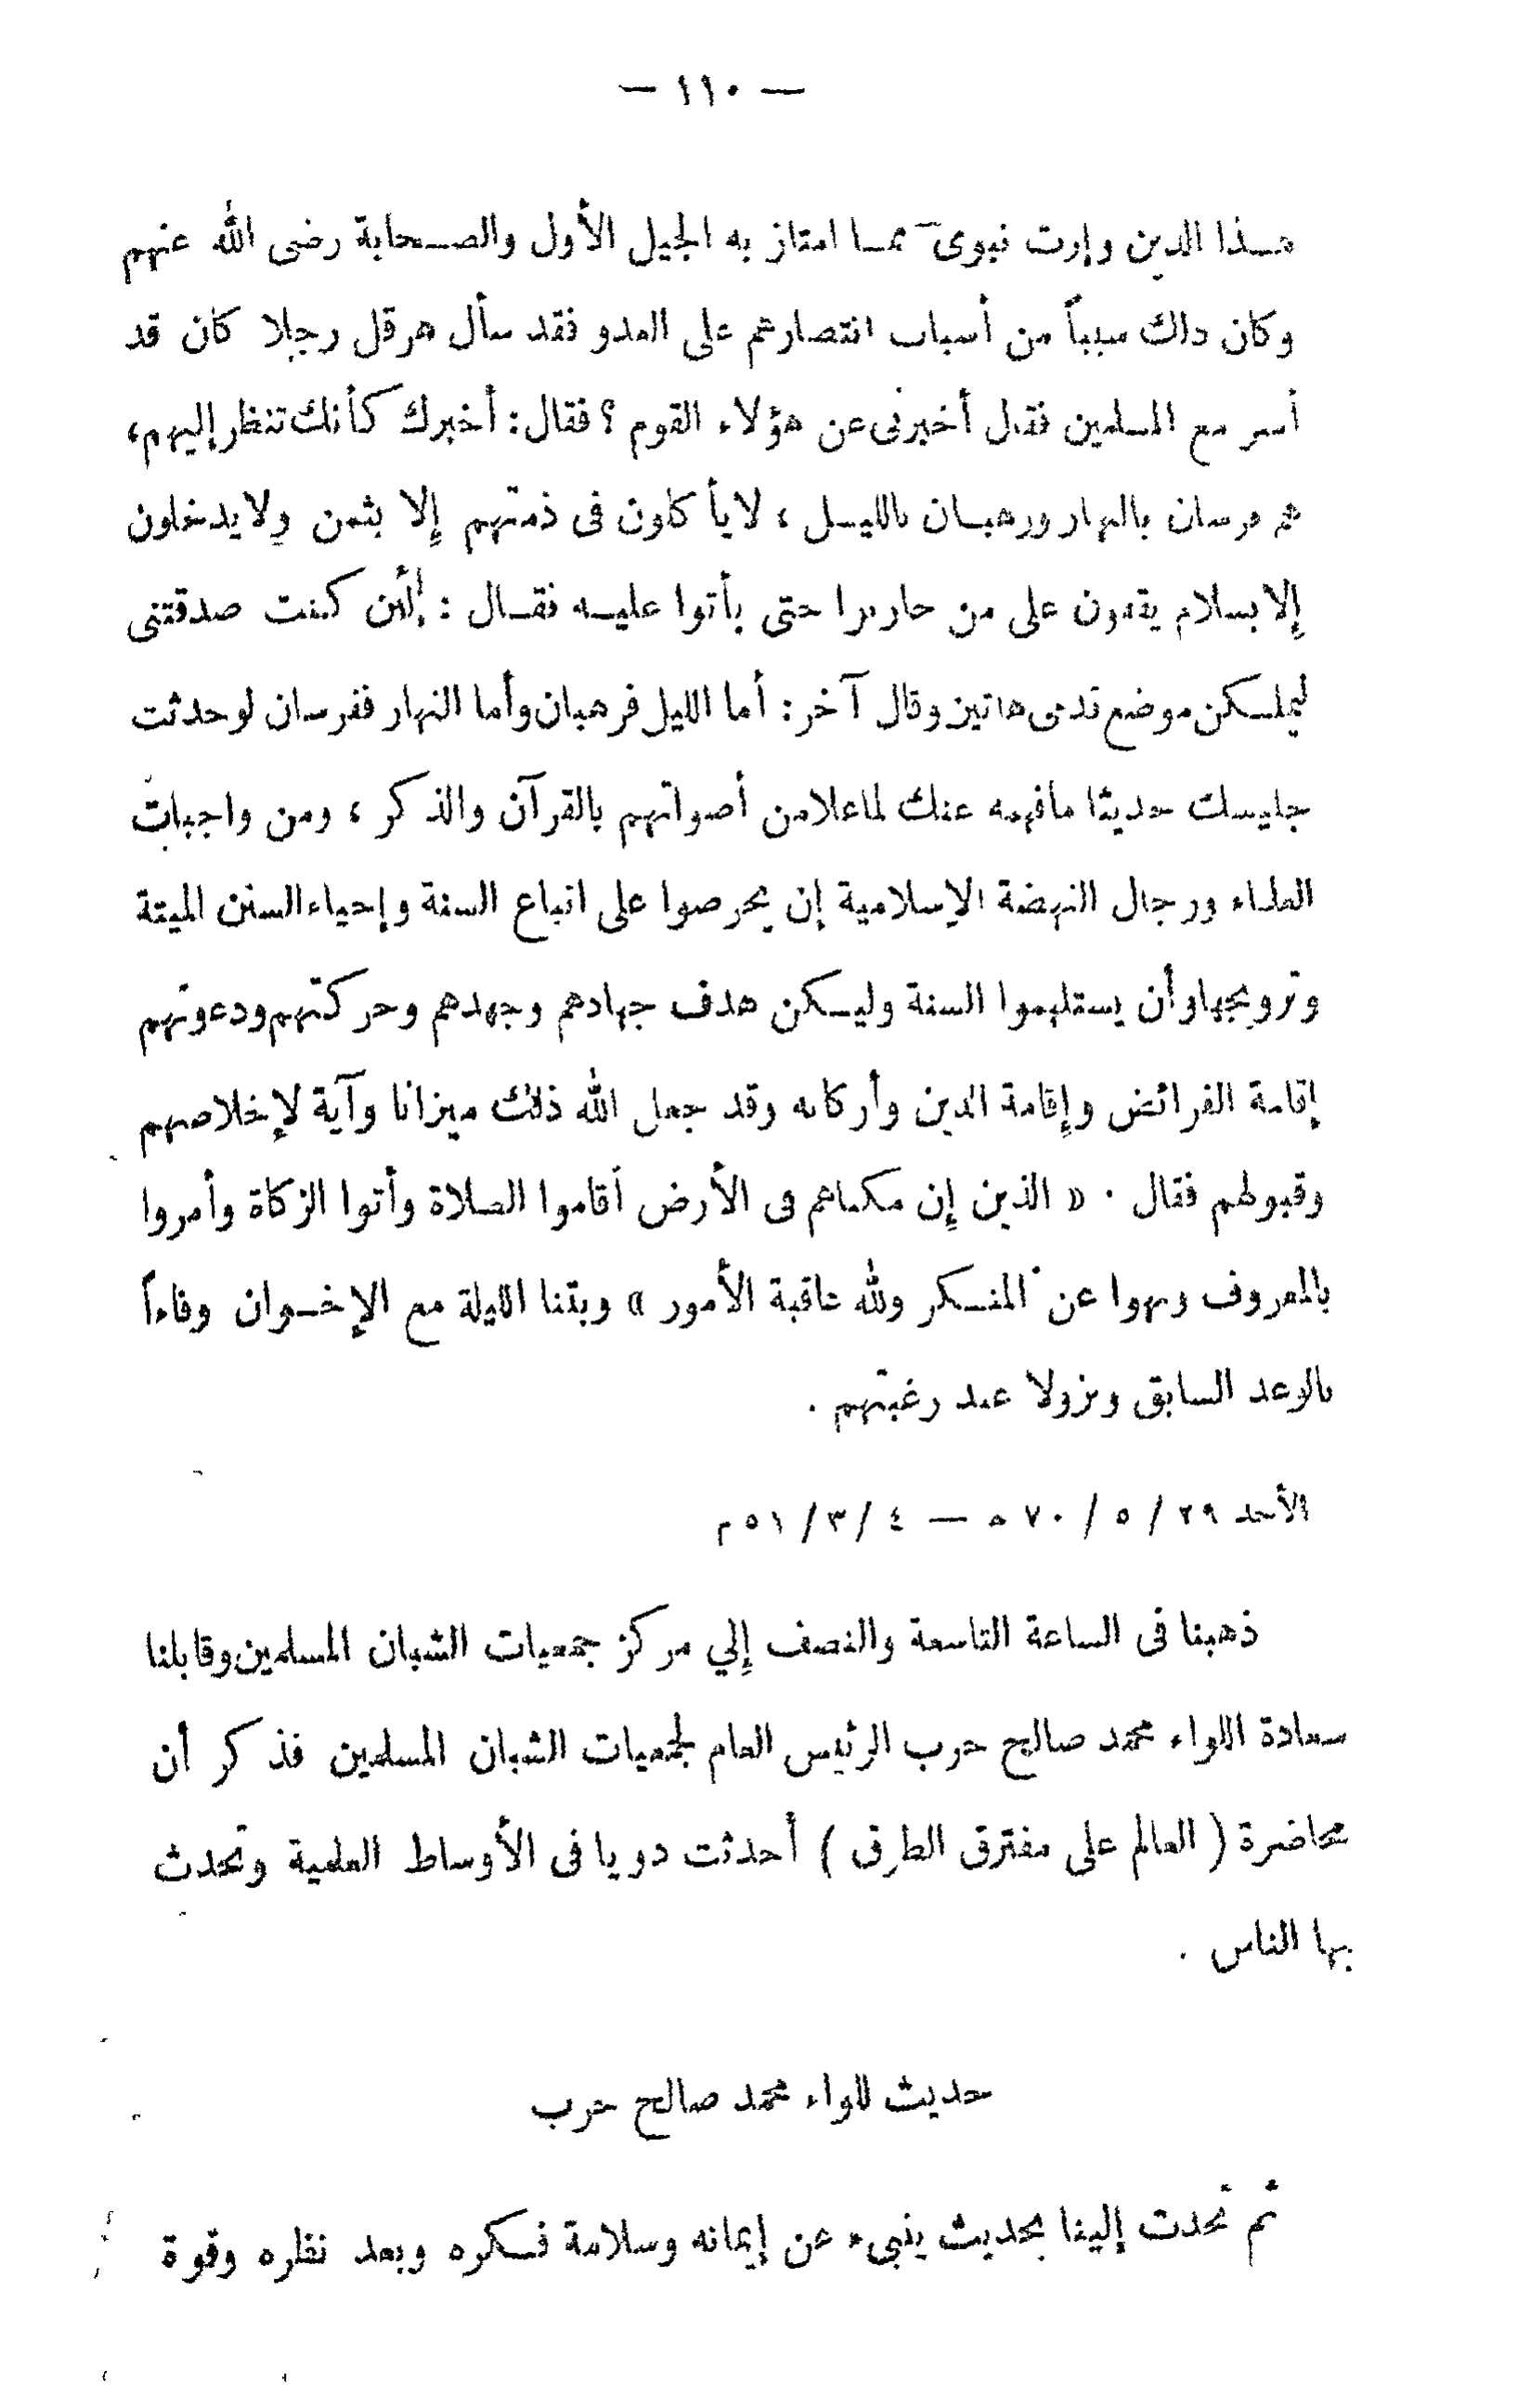 — ١١٠ —
هذا الدين وإرث نبوى مما امتاز به الجيل الأول والصحابة رضى الله عنهم
وكان ذلك سبباً من أسباب انتصارهم على العدو فقد سأل هرقل رجلا كان قد
أسر مع المسلمين فقال أخبرنى عن هؤلاء القوم ؟ فقال : أخبرك كأنك تنظر إليهم ،
هم فرسان بالنهار ورهبان بالليل ، لا يأكلون فى ذمتهم إلا بثمن ولا يدخلون
إلا بسلام يقفون على من حاربوا حتى يأتوا عليه فقال : لئن كنت صدقتنى
ليملكن موضع قدمى هاتين وقال آخر : أما الليل فرهبان وأما النهار ففرسان لو حدثت
جليسك حديثا مافهمه عنك لما علا من أصواتهم بالقرآن والذكر ، ومن واجبات
العلماء ورجال النهضة الإسلامية إن يحرصوا على اتباع السنة وإحياء السنن الميتة
وترويجها وأن يستلهموا السنة وليكن هدف جهادهم وجهدهم وحركتهم ودعوتهم
إقامة الفرائض وإقامة الدين وأركانه وقد جعل الله ذلك ميزانا وآية لإخلاصهم
وقبولهم فقال . « الذين إن مكناهم فى الأرض أقاموا الصلاة وأتوا الزكاة وأمروا
بالمعروف ونهوا عن المنكر ولله عاقبة الأمور » وبتنا الليلة مع الإخوان وفاءاً
بالوعد السابق ونزولا عند رغبتهم .
الأحد ٢٩ / ٥ / ٧٠ ه — ٤ / ٣ / ٥١ م
ذهبنا فى الساعة التاسعة والنصف إلي مركز جمعيات الشبان المسلمين وقابلنا
سعادة اللواء محمد صالح حرب الرئيس العام لجمعيات الشبان المسلمين فذكر أن
محاضرة ( العالم على مفترق الطرق ) أحدثت دويا فى الأوساط العلمية وتحدث
بها الناس .
حديث للواء محمد صالح حرب
ثم تحدث إلينا بحديث ينبىء عن إيمانه وسلامة فكره وبعد نظره وقوة